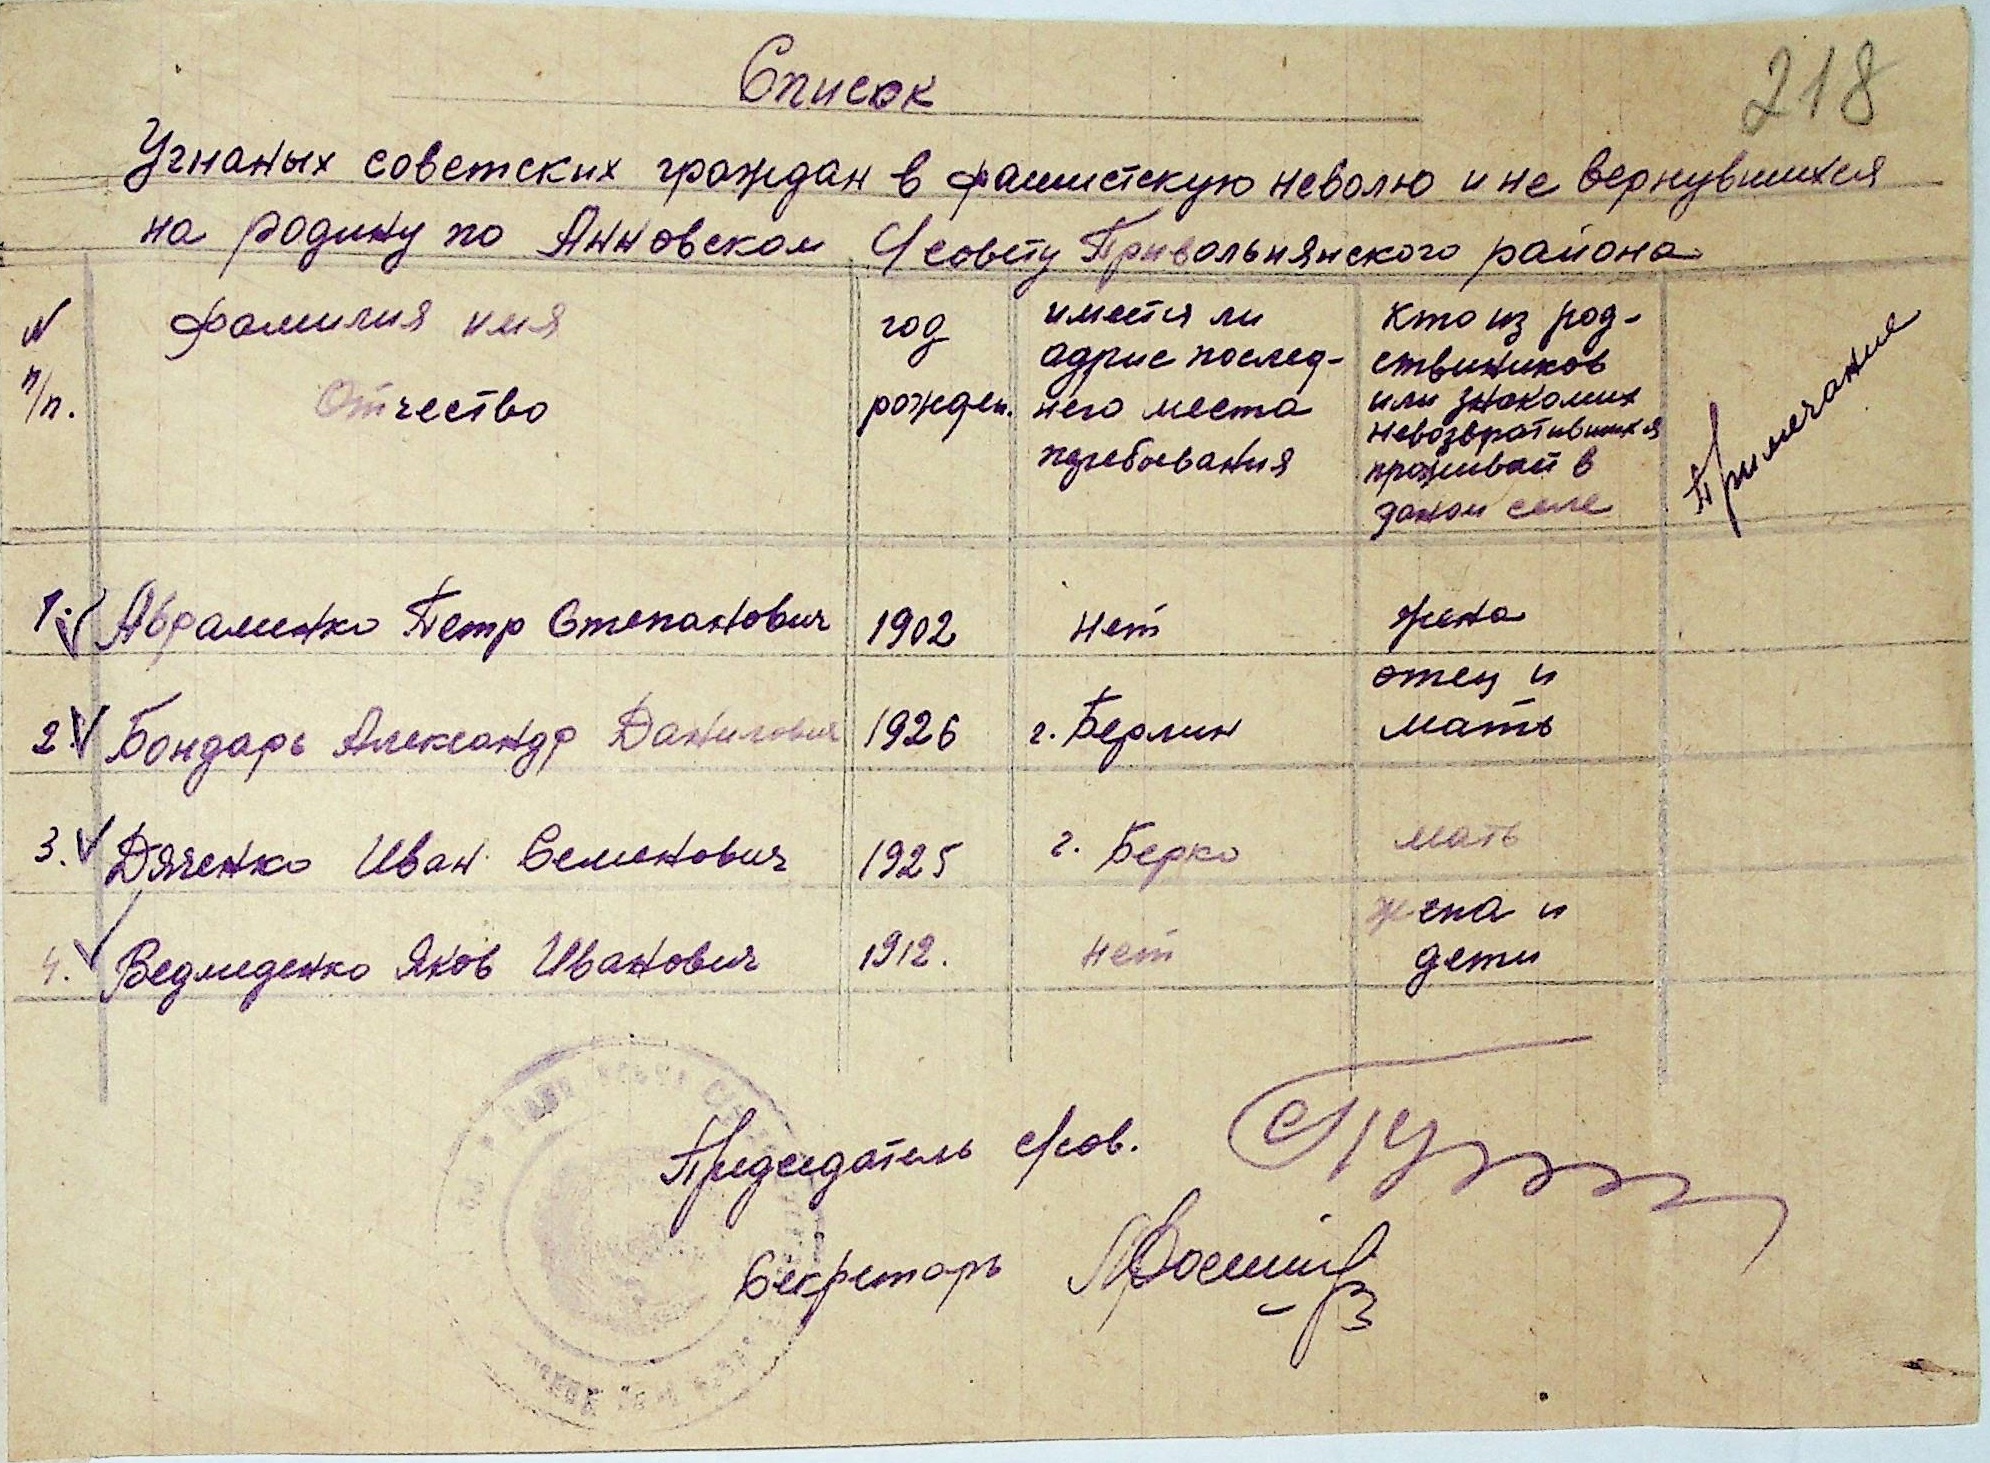 218
Список
Угнаных советских граждан в фашистскую неволю и не вернувшихся
на родину по Анновском с/совету Привольнянского района
N п/п.
фамилия имя
Отчество
год
рожден.
имется ли
адрис послед-
него места
перебования
кто из род-
ствиников
или знакомих
невозвратившихся
прожывай в
даном селе
Примечание
1. Абраменко Петр Степанович 1902 нет жена
2. Бондарь Александр Данилович 1926 г. Берлин отец и
мать
3. Дяченко Иван Семенович 1925 г. Берко мать
4. Ведмеденко Яков Иванович 1912. нет жена и
дети
Председатель с/сов.
Секретарь